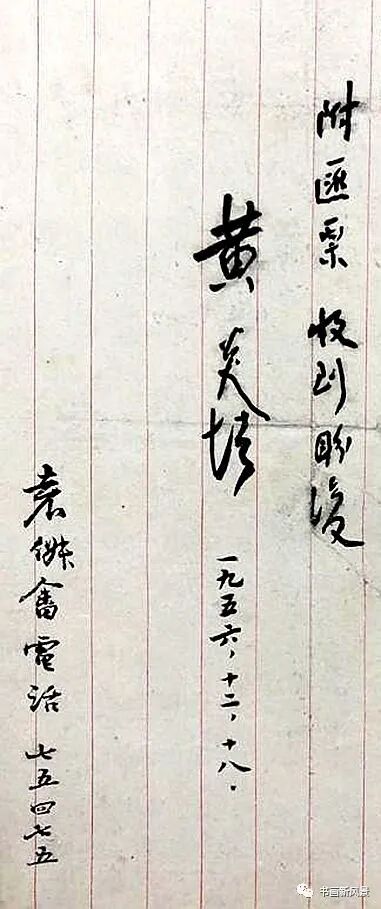 附匯票 收到盼復
黄炎培
一九五六，十二，十八．
袁
電话 七五四七五
书画新风景